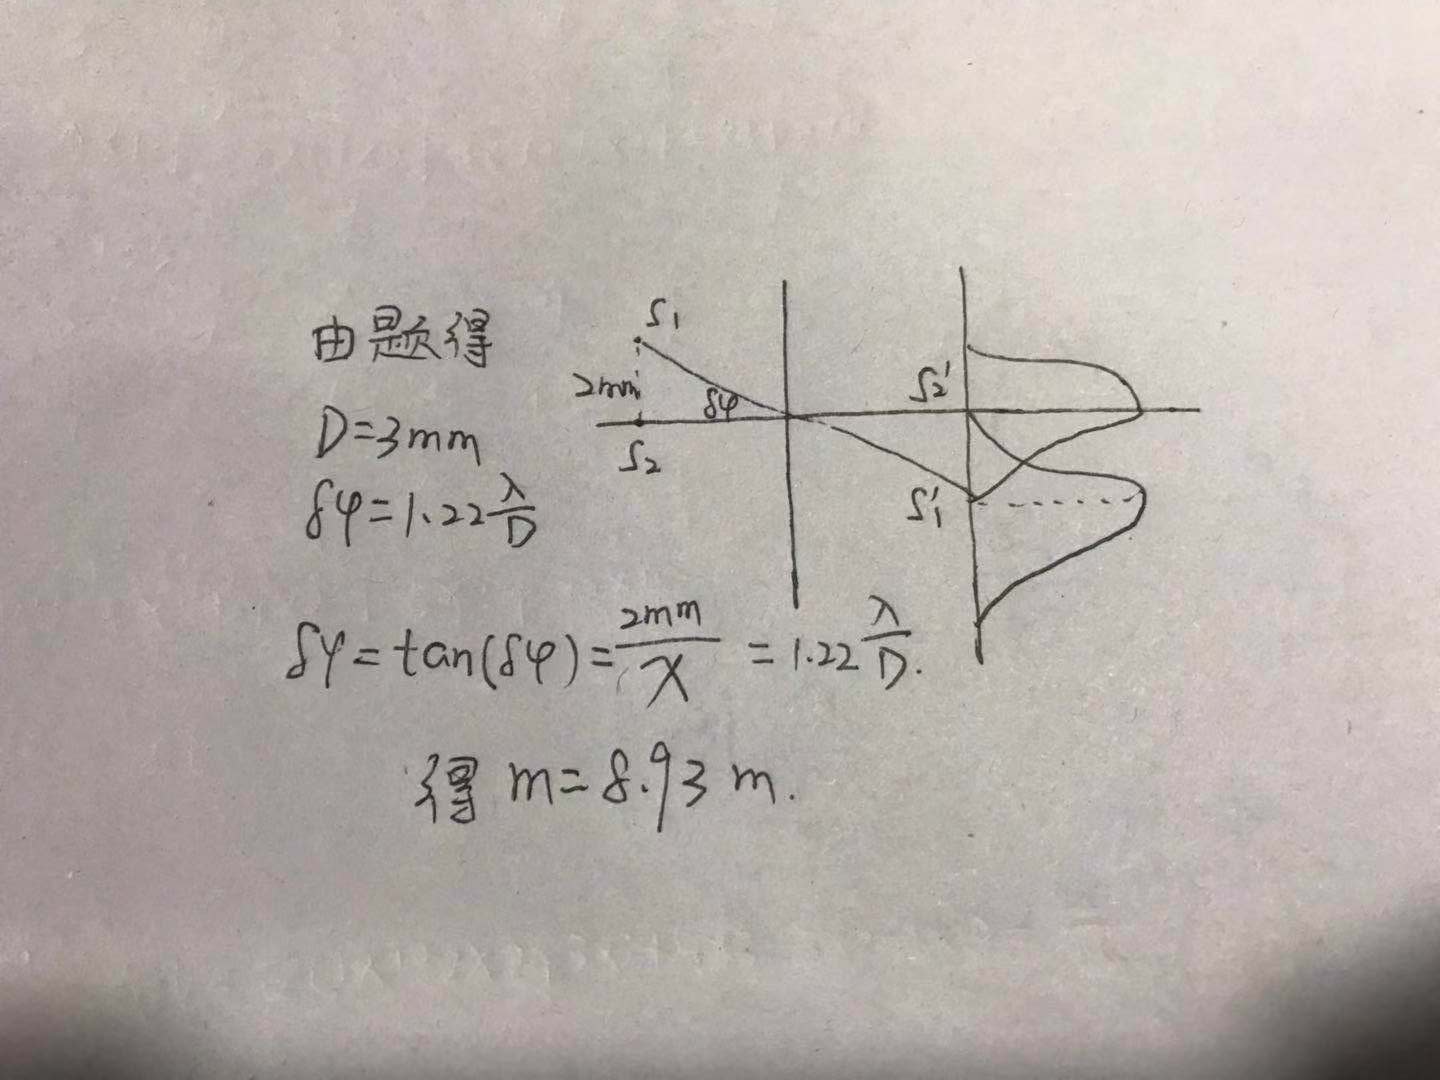 由题得
D=3mm
δφ=1.22 λ/D
S₁
2mm
δφ
S₂
S₂'
S₁'
δφ=tan(δφ)=2mm/x=1.22 λ/D.
得 m=8.93 m.